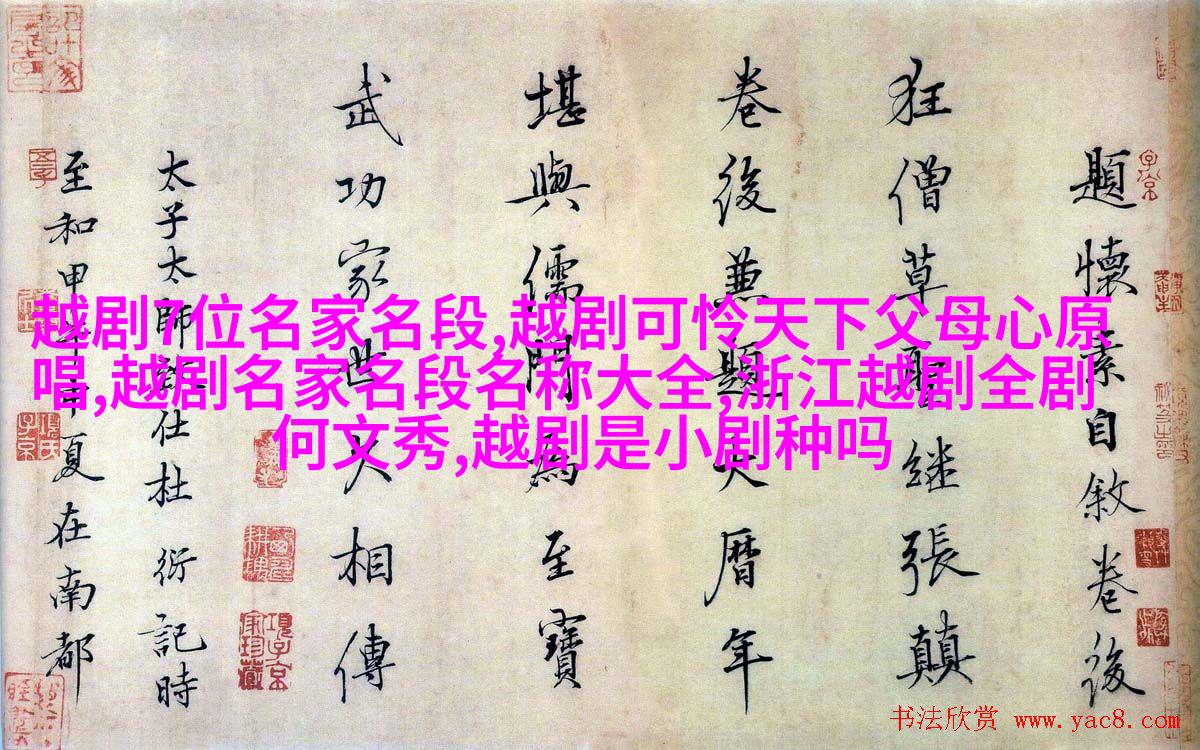 越剧7位名家名段,越剧可怜天下父母心原
唱,越剧名家名段名称大全,浙江越剧全剧
何文秀,越剧是小剧种吗
題懷素自敘卷後
狂僧草聖継張顛
卷後兼題大曆年
堪與儒門為至寶
武功家世久相傳
太子太師致仕杜衍記時
至和甲午夏在南都
书法欣赏 www.yac8.com